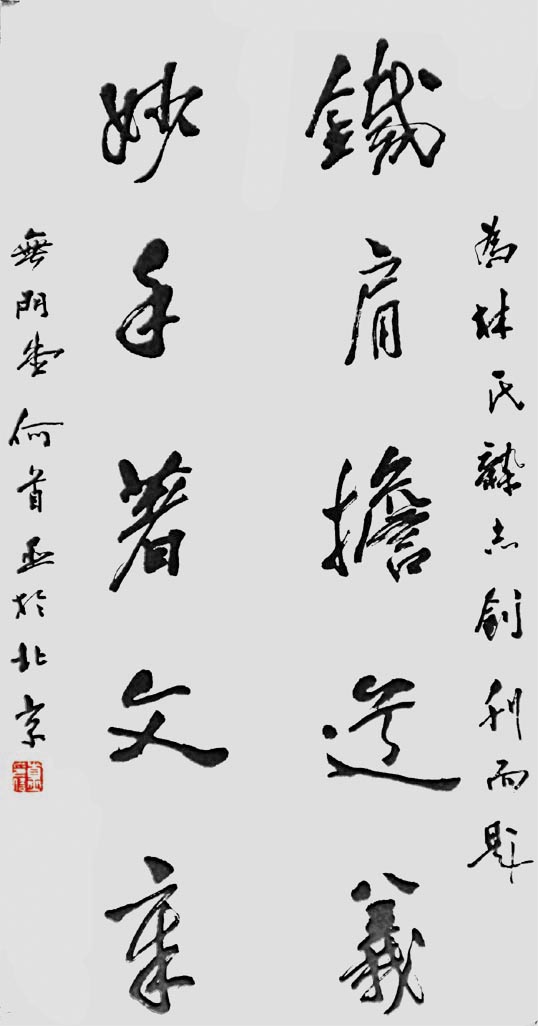 為林氏雜志創刊而題
鐵肩擔道義
妙手著文章
無門堂何首巫於北京